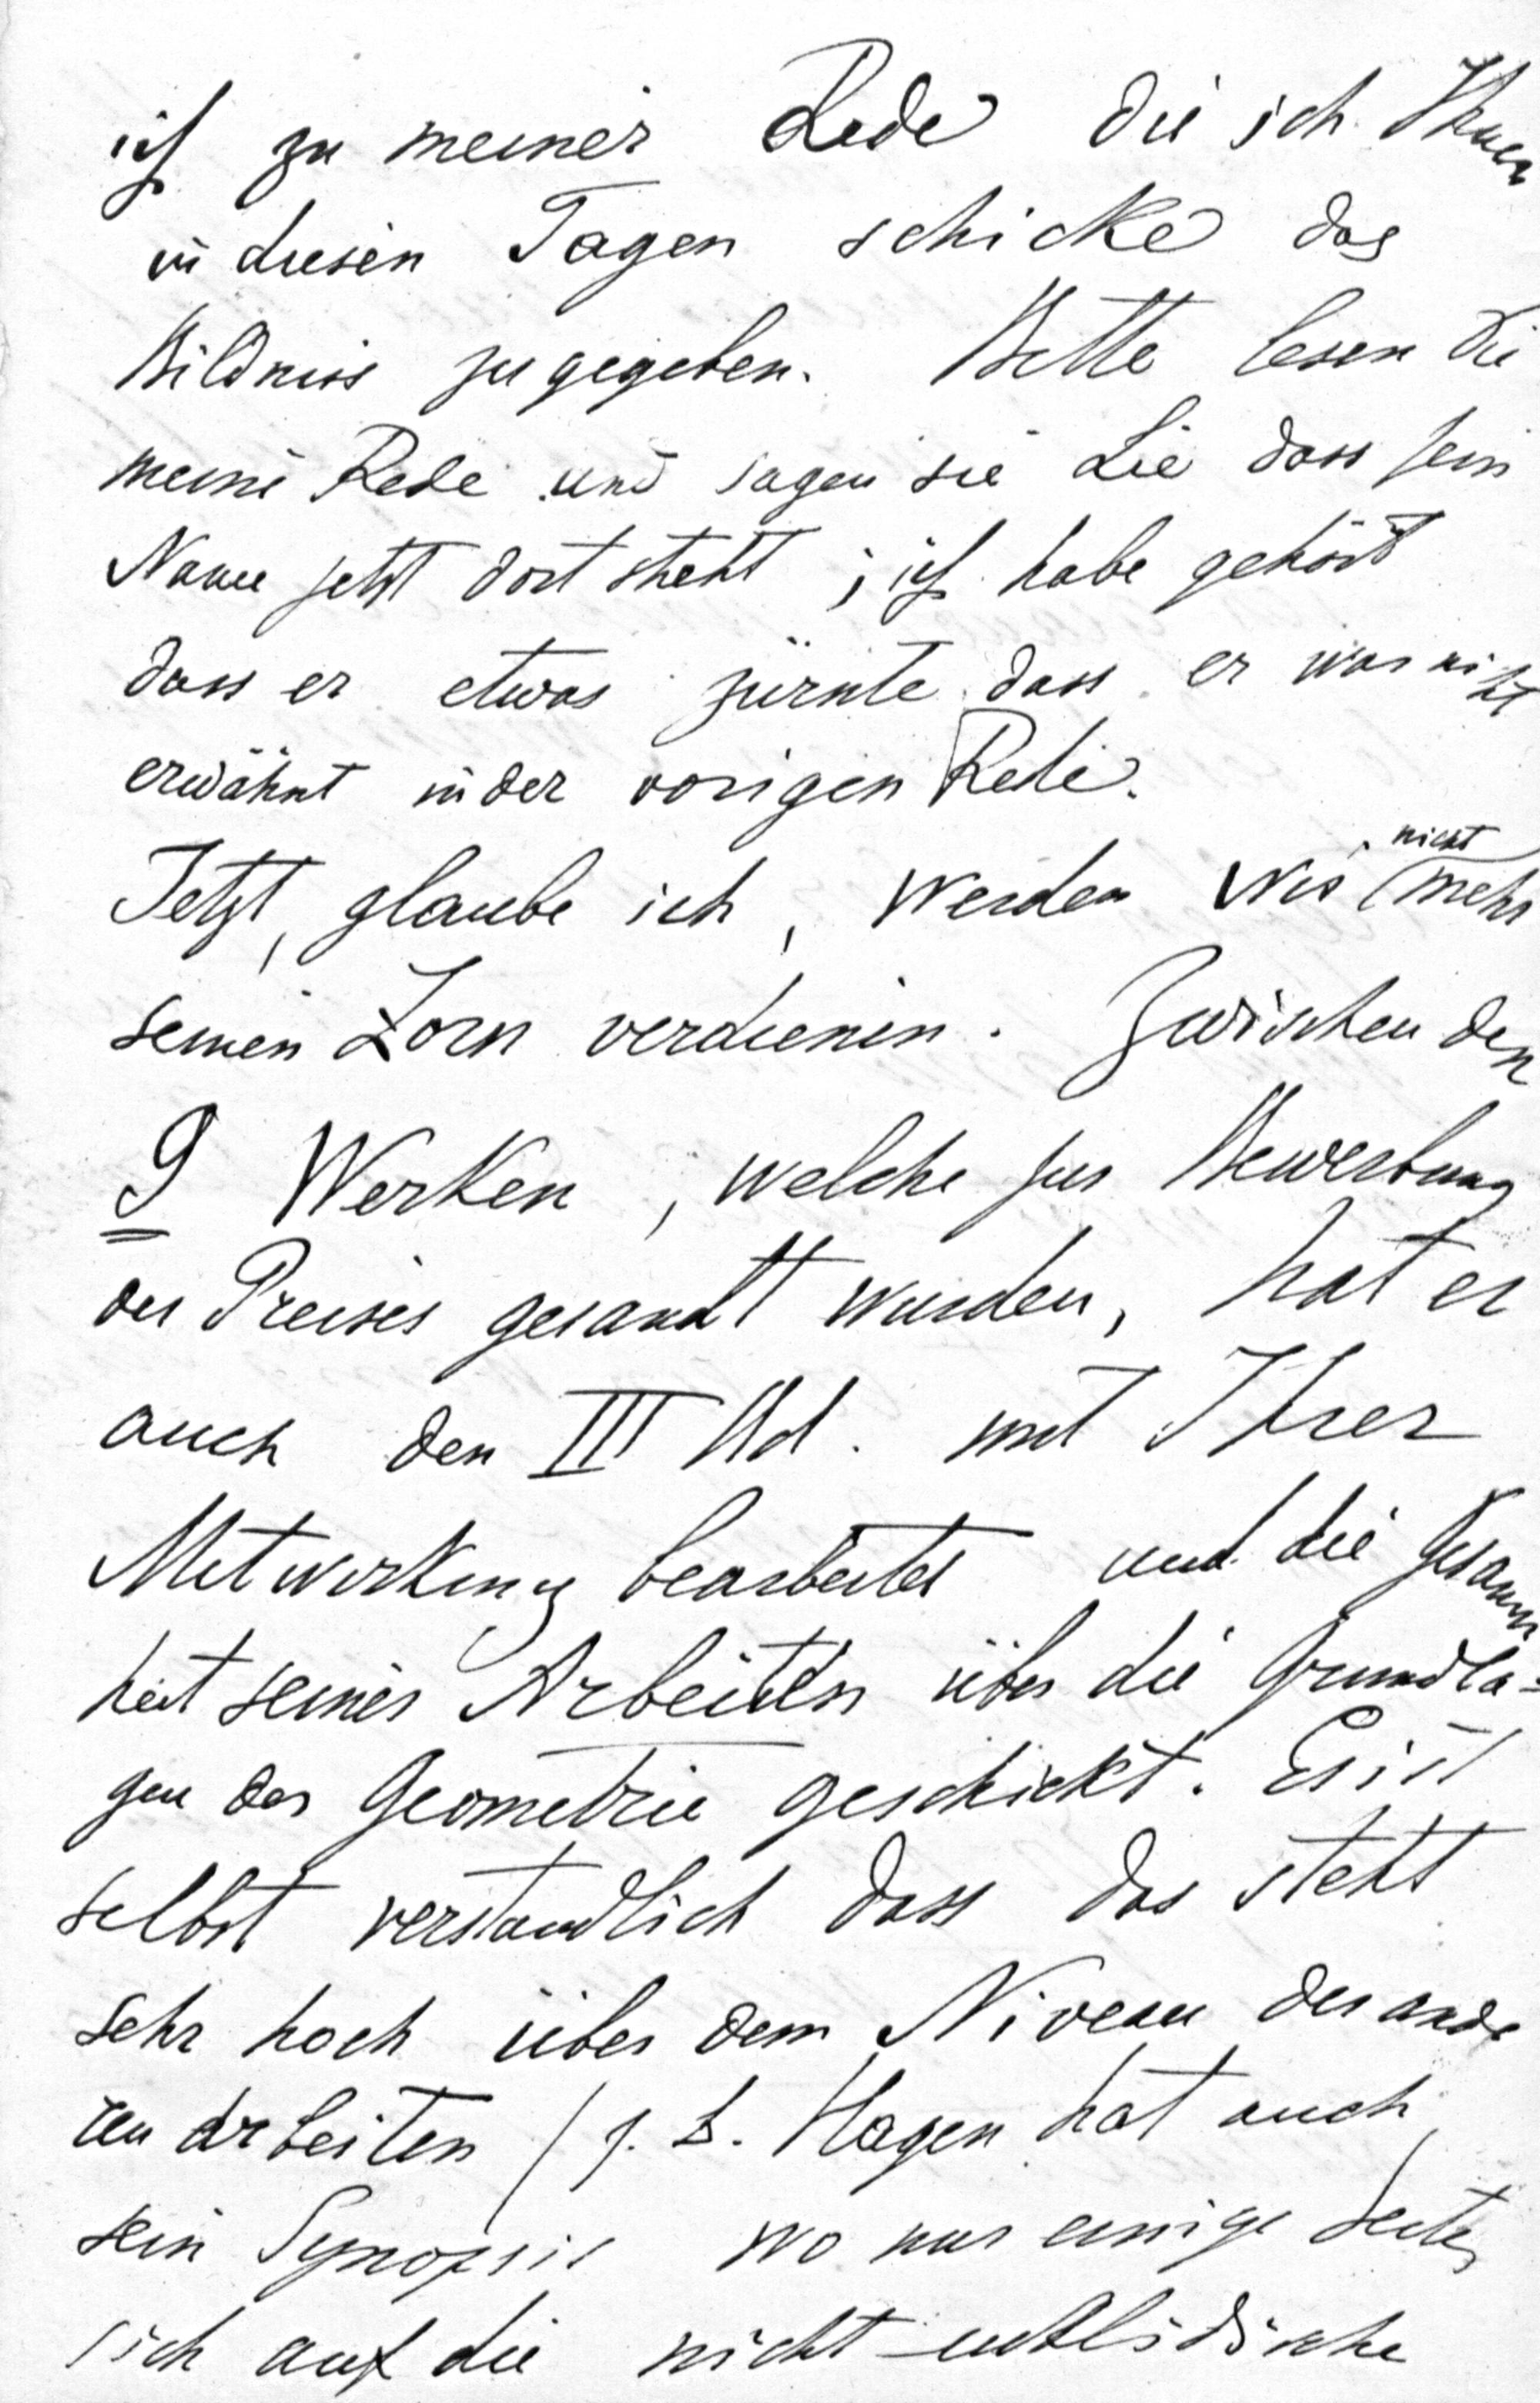 ich zu meiner Rede die ich Ihnen
in diesen Tagen schicke das
Bildniss zugegeben. Bitte lesen Sie
meine Rede und sagen sie Lie dass sein
Name jetzt dort steht ; ich habe gehört
dass er etwas zürnte dass er war nicht
erwähnt in der vorigen Rede.
Jetzt, glaube ich, werden wir nicht mehr
seinen Zorn verdienen. Zwischen den
9 Werken, welche zur Bewerbung
des Preises gesandt wurden, hat er
auch den III Bd. mit Ihrer
Mitwirkung bearbeitet und die Gesamm
heit seiner Arbeiten über die Grundla=
gen der Geometrie geschickt. Es ist
selbst verstandlich dass das steht
sehr hoch über dem Niveau der ande
ren Arbeiten (z. B. Hagen hat auch
sein Synopsis wo nur einige Seiten
sich auf die nicht-euklidische